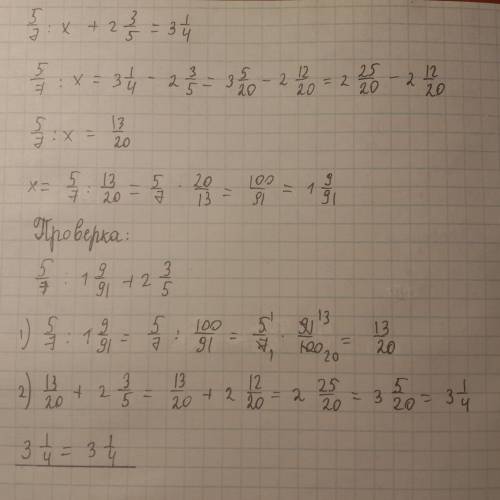 5/7 : x + 2 3/5 = 3 1/4
5/7 : x = 3 1/4 - 2 3/5 = 3 5/20 - 2 12/20 = 2 25/20 - 2 12/20
5/7 : x = 13/20
x = 5/7 : 13/20 = 5/7 · 20/13 = 100/91 = 1 9/91
Проверка:
5/7 : 1 9/91 + 2 3/5
1) 5/7 : 1 9/91 = 5/7 : 100/91 = 5¹/7₁ · 91¹³/100₂₀ = 13/20
2) 13/20 + 2 3/5 = 13/20 + 2 12/20 = 2 25/20 = 3 5/20 = 3 1/4
3 1/4 = 3 1/4